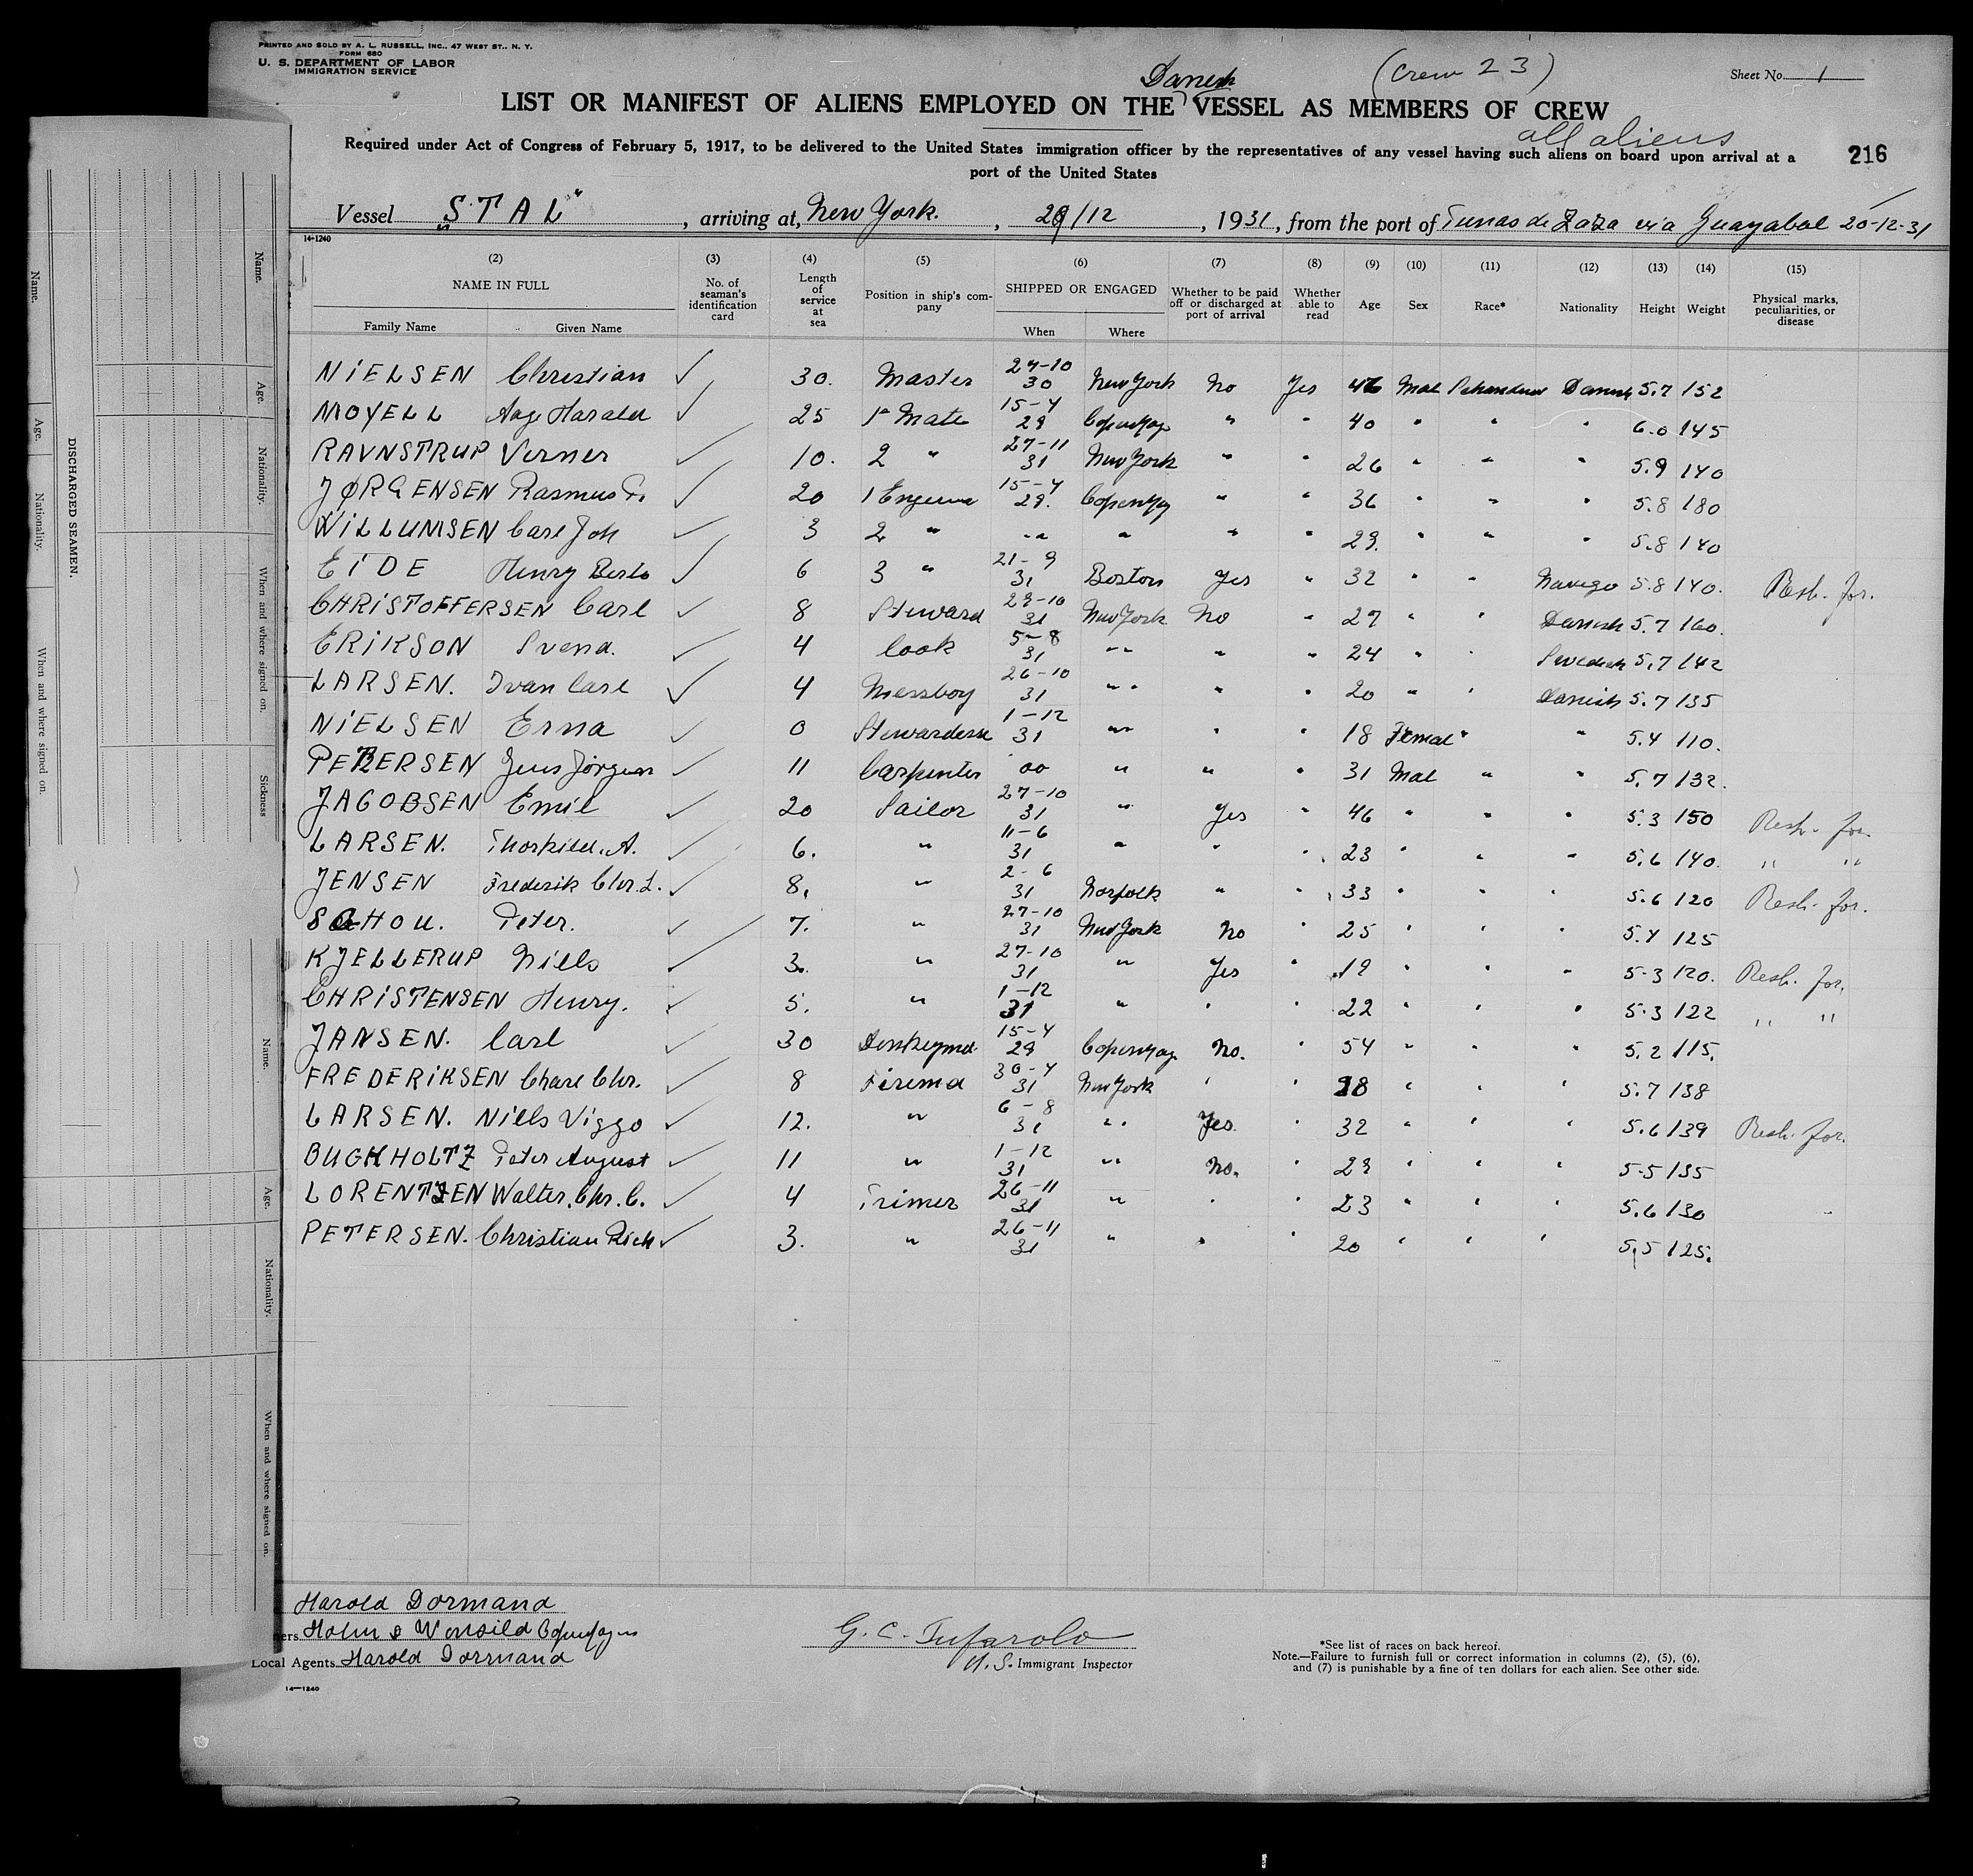 PRINTED AND SOLD BY A. L. RUSSELL, INC., 47 WEST ST., N. Y.
FORM 680
U. S. DEPARTMENT OF LABOR
IMMIGRATION SERVICE
Danish (Crew 23) Sheet No. 1
LIST OR MANIFEST OF ALIENS EMPLOYED ON THE VESSEL AS MEMBERS OF CREW
all aliens
Required under Act of Congress of February 5, 1917, to be delivered to the United States immigration officer by the representatives of any vessel having such aliens on board upon arrival at a
port of the United States
216
Vessel "STAL", arriving at, New York, 29/12, 1931, from the port of Tunas de Zaza via Guayabal 20-12-31
14-1240
(2) (3) (4) (5) (6) (7) (8) (9) (10) (11) (12) (13) (14) (15)
NAME IN FULL No. of seaman's identification card Length of service at sea Position in ship's company SHIPPED OR ENGAGED Whether to be paid off or discharged at port of arrival Whether able to read Age Sex Race* Nationality Height Weight Physical marks, peculiarities, or disease
Family Name Given Name When Where
NIELSEN Christian ✓ 30. Master 30 New York No Yes 46 Mal Danish 5.7 152
MOYELL Aage Harald ✓ 25 1 Mate 15-4 29 Copenhag " " 40 " " " 6.0 145
RAVNSTRUP Verner ✓ 10. 2 " 27-11 31 New York " " 26 " " " 5.9 140
JØRGENSEN Rasmus ✓ 20 1 Engineer 15-4 29. Copenhag " " 36 " " " 5.8 180
WILLUMSEN Carl Joh ✓ 3 2 " " " " " " 29. " " " 5.8 140
EIDE Henry ✓ 6 3 " 21-9 31 Boston Yes " 32 " " 5.8 140. Resh. for.
CHRISTOFFERSEN Carl ✓ 8 Steward 29-10 31 New York No " 27 " " Danish 5.7 160.
ERIKSON Svend. ✓ 4 Cook 5-8 31 " " " 24 " " Swedish 5.7 142
LARSEN. Ivan Carl ✓ 4 Messboy 26-10 31 " " " 20 " " Danish 5.7 135
NIELSEN Erna ✓ 0 Stewardess 1-12 31 " " " 18 Femal " " 5.4 110.
PETERSEN Jens Jörgen ✓ 11 Carpenter " " " " 31 Mal " " 5.7 132.
JACOBSEN Emil ✓ 20 Sailor 27-10 31 " Yes " 46 " " " 5.3 150 Resh. for.
LARSEN. Thorkild. A. ✓ 6. " 11-6 31 " " " 23 " " " 5.6 140. " "
JENSEN Frederik Chr. L. ✓ 8. " 2-6 31 Norfolk " " 33 " " " 5.6 120 Resh. for.
SCHOU. Peter. ✓ 7. " 27-10 31 New York No " 25 " " " 5.4 125
KJELLERUP Niels ✓ 3. " 27-10 31 " Yes " 19 " " " 5.3 120. Resh. for.
CHRISTENSEN Henry. ✓ 5. " 1-12 31 " " " 22 " " " 5.3 122 " "
JANSEN. Carl ✓ 30 Donkeyma 15-4 29 Copenhag No. " 54 " " " 5.2 115.
FREDERIKSEN Charl Chr. ✓ 8 Firema 30-4 31 New York " " 28 " " " 5.7 138
LARSEN. Niells Viggo ✓ 12. " 6-8 31 " Yes. " 32 " " " 5.6 139 Resh. for.
BUCHHOLTZ Peter August ✓ 11 " 1-12 31 " No. " 29 " " " 5.5 135
LORENTZEN Walter. Chr. C. ✓ 4 Trimer 26-11 31 " " " 23 " " " 5.6 130
PETERSEN. Christian Rich ✓ 3. " 26-11 31 " " " 20 " " " 5.5 125.
Harold Dormand
ners Holm & Wonsild Copenhagen
Local Agents Harold Dormand
14-1240
G. C. Tufarolo
U.S. Immigrant Inspector
*See list of races on back hereof.
Note.—Failure to furnish full or correct information in columns (2), (5), (6),
and (7) is punishable by a fine of ten dollars for each alien. See other side.
DISCHARGED SEAMEN.
Name. Age. Nationality. When and where signed on.
Name. Age. Nationality. When and where signed on. Sickness
Name. Age. Nationality. When and where signed on.